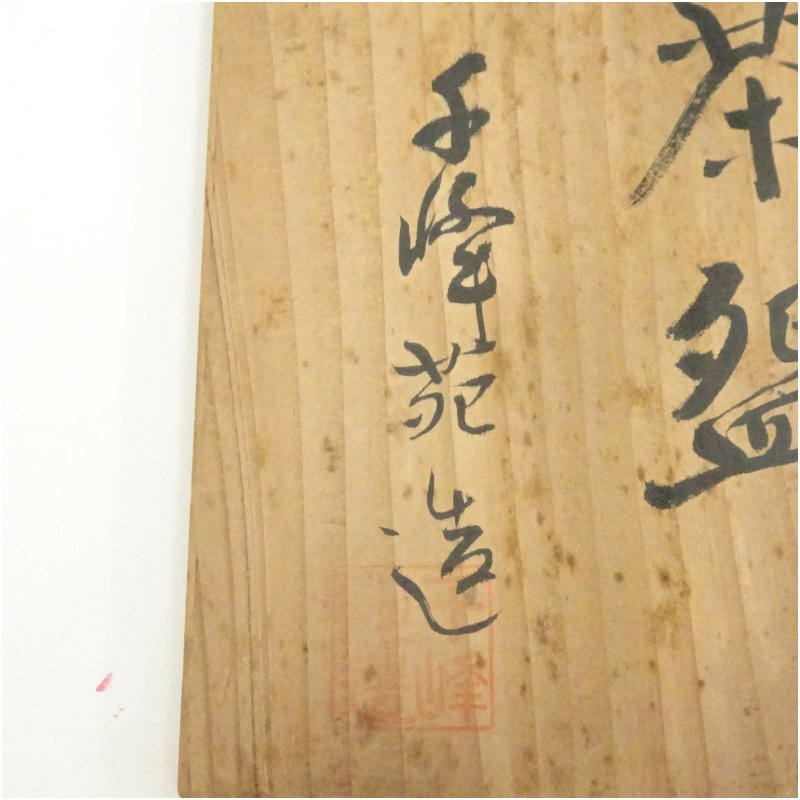 茶盌
千峰苑造
峰